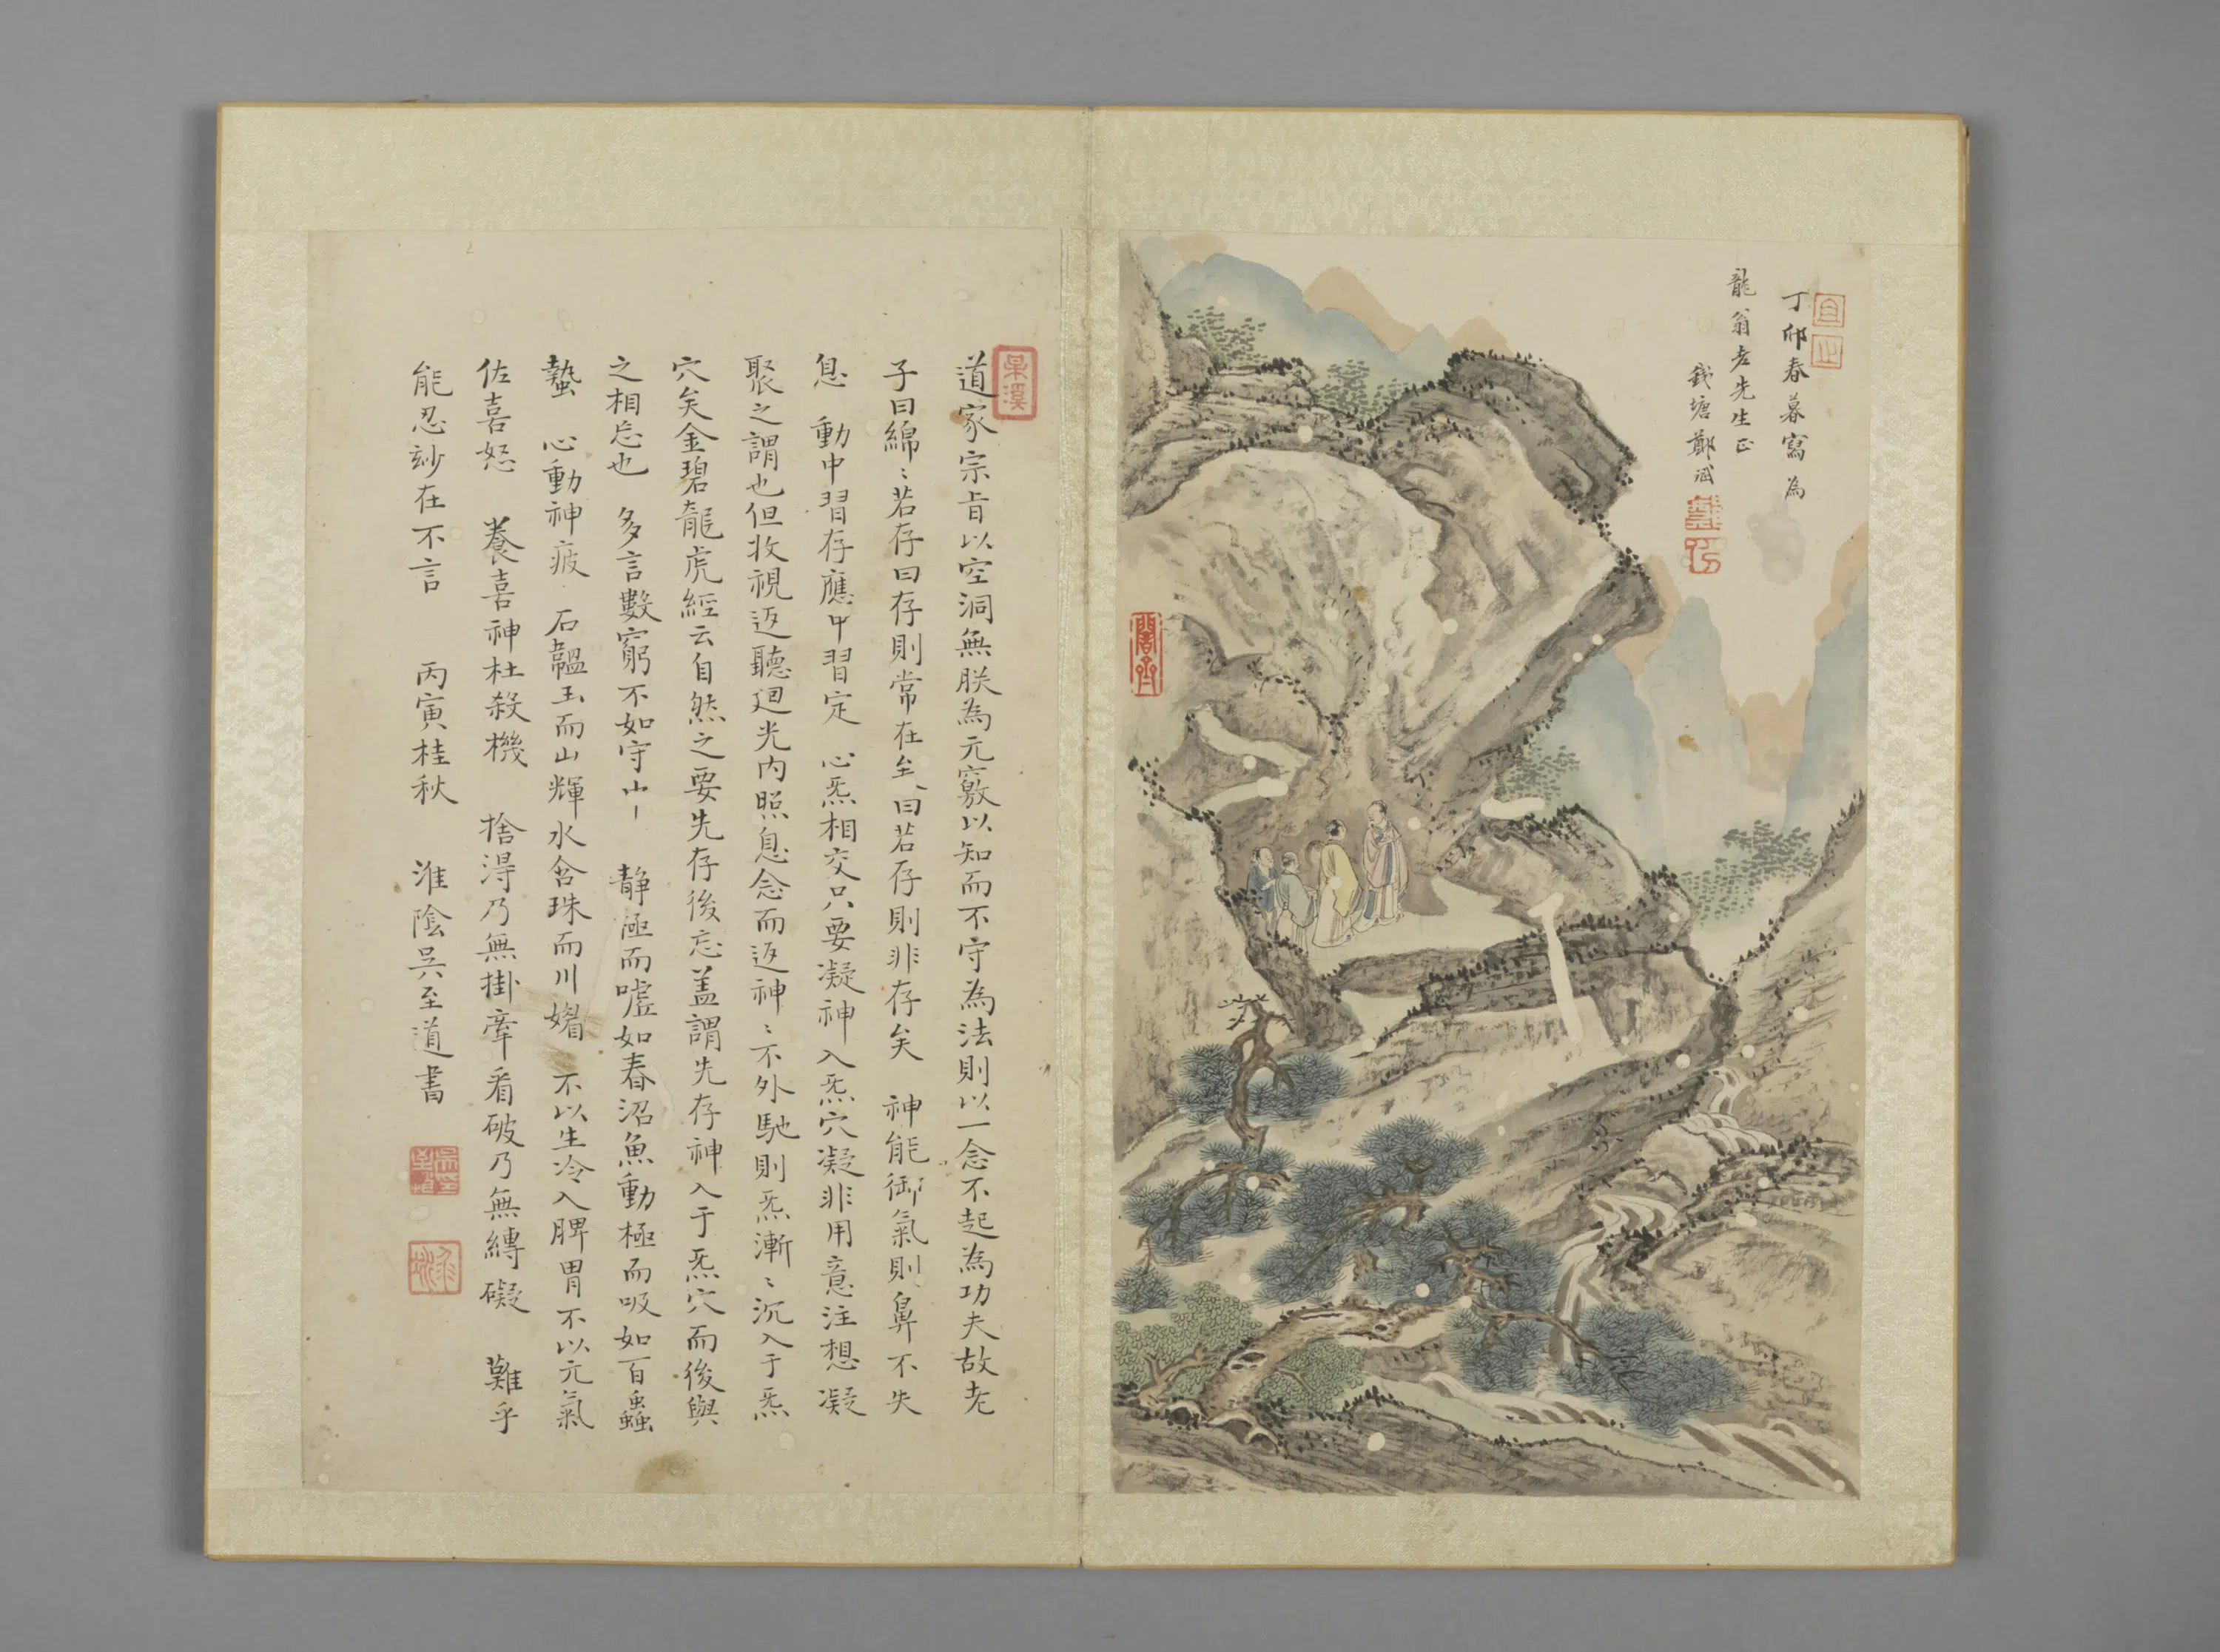 丁卯春暮寫為
龍翁老先生正
錢塘鄭斌
道家宗旨以空洞無朕為元竅以知而不守為法則以一念不起為功夫故老
子曰綿〻若存曰存則常在矣曰若存則非存矣 神能御氣則鼻不失
息 動中習存應中習定 心炁相交只要凝神入炁穴凝非用意注想凝
聚之謂也但收視返聽迴光內照息念而返神〻不外馳則炁漸〻沉入于炁
穴矣金碧龍虎經云自然之要先存後忘盖謂先存神入于炁穴而後與
之相忘也 多言數窮不如守中 静極而噓如春沼魚動極而吸如百蟲
蟄 心動神疲 石韞玉而山輝水含珠而川媚 不以生冷入脾胃不以元氣
佐喜怒 養喜神杜殺機 捨得乃無掛牽看破乃無縛礙 難乎
能忍妙在不言 丙寅桂秋 淮陰吳至道書